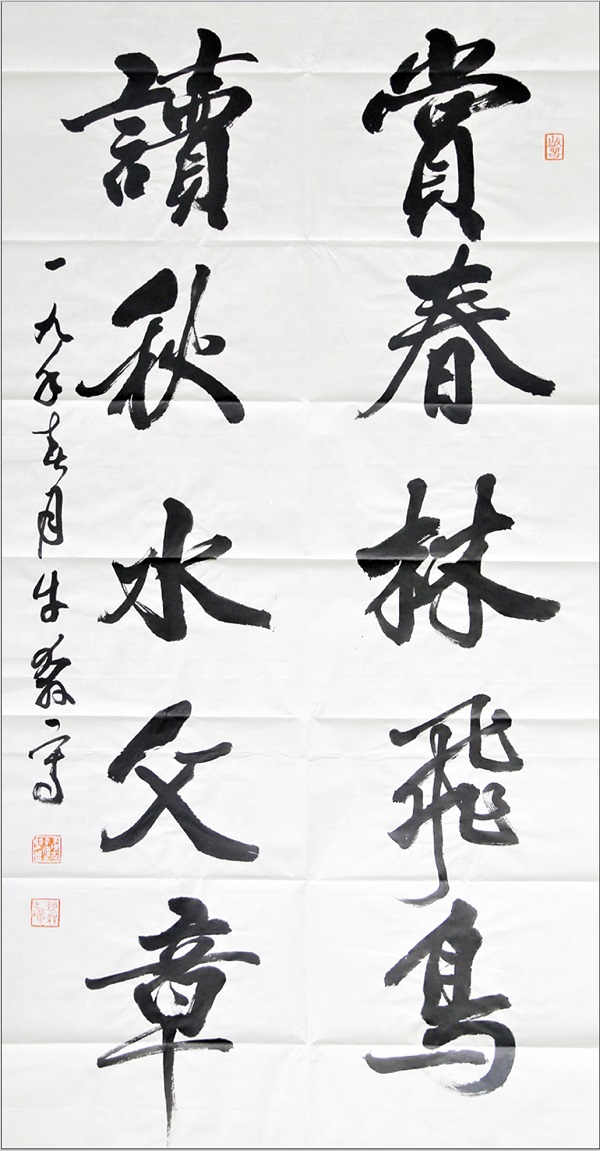 賞春林飛鳥
讀秋水文章
一九年春月牛